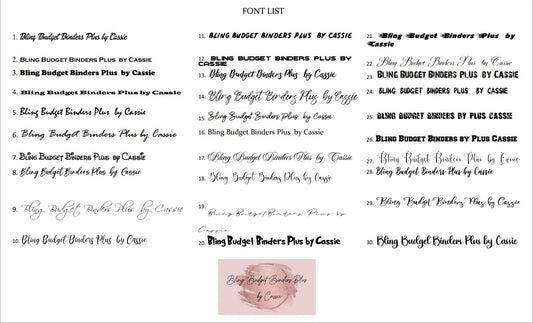 FONT LIST
1. Bling Budget Binders Plus by Cassie
2. BLING BUDGET BINDERS PLUS BY CASSIE
3. Bling Budget Binders Plus by Cassie
4. Bling Budget Binders Plus by Cassie
5. Bling Budget Binders Plus by Cassie
6. Bling Budget Binders Plus by Cassie
7. Bling Budget Binders Plus by Cassie
8. Bling Budget Binders Plus by Cassie
9. Bling Budget Binders Plus by Cassie
10. Bling Budget Binders Plus by Cassie
11. BLING BUDGET BINDERS PLUS BY CASSIE
12. BLING BUDGET BINDERS PLUS BY
CASSIE
13. Bling Budget Binders Plus by Cassie
14. Bling Budget Binders Plus by Cassie
15. Bling Budget Binders Plus by Cassie
16. Bling Budget Binders Plus by Cassie
17. Bling Budget Binders Plus by Cassie
18. Bling Budget Binders Plus by Cassie
19.
Bling Budget Binders Plus by
Cassie
20. Bling Budget Binders Plus by Cassie
21. Bling Budget Binders Plus by
Cassie
22. Bling Budget Binders Plus by Cassie
23. BLING BUDGET BINDERS PLUS BY CASSIE
24. BLING BUDGET BINDERS PLUS BY CASSIE
25. BLING BUDGET BINDERS BY PLUS CASSIE
26. BLING BUDGET BINDERS BY PLUS CASSIE
27. Bling Budget Binders Plus by Cassie
28. Bling Budget Binders Plus by Cassie
29. Bling Budget Binders Plus by Cassie
30. Bling Budget Binders Plus by Cassie
Bling Budget Binders Plus
by Cassie